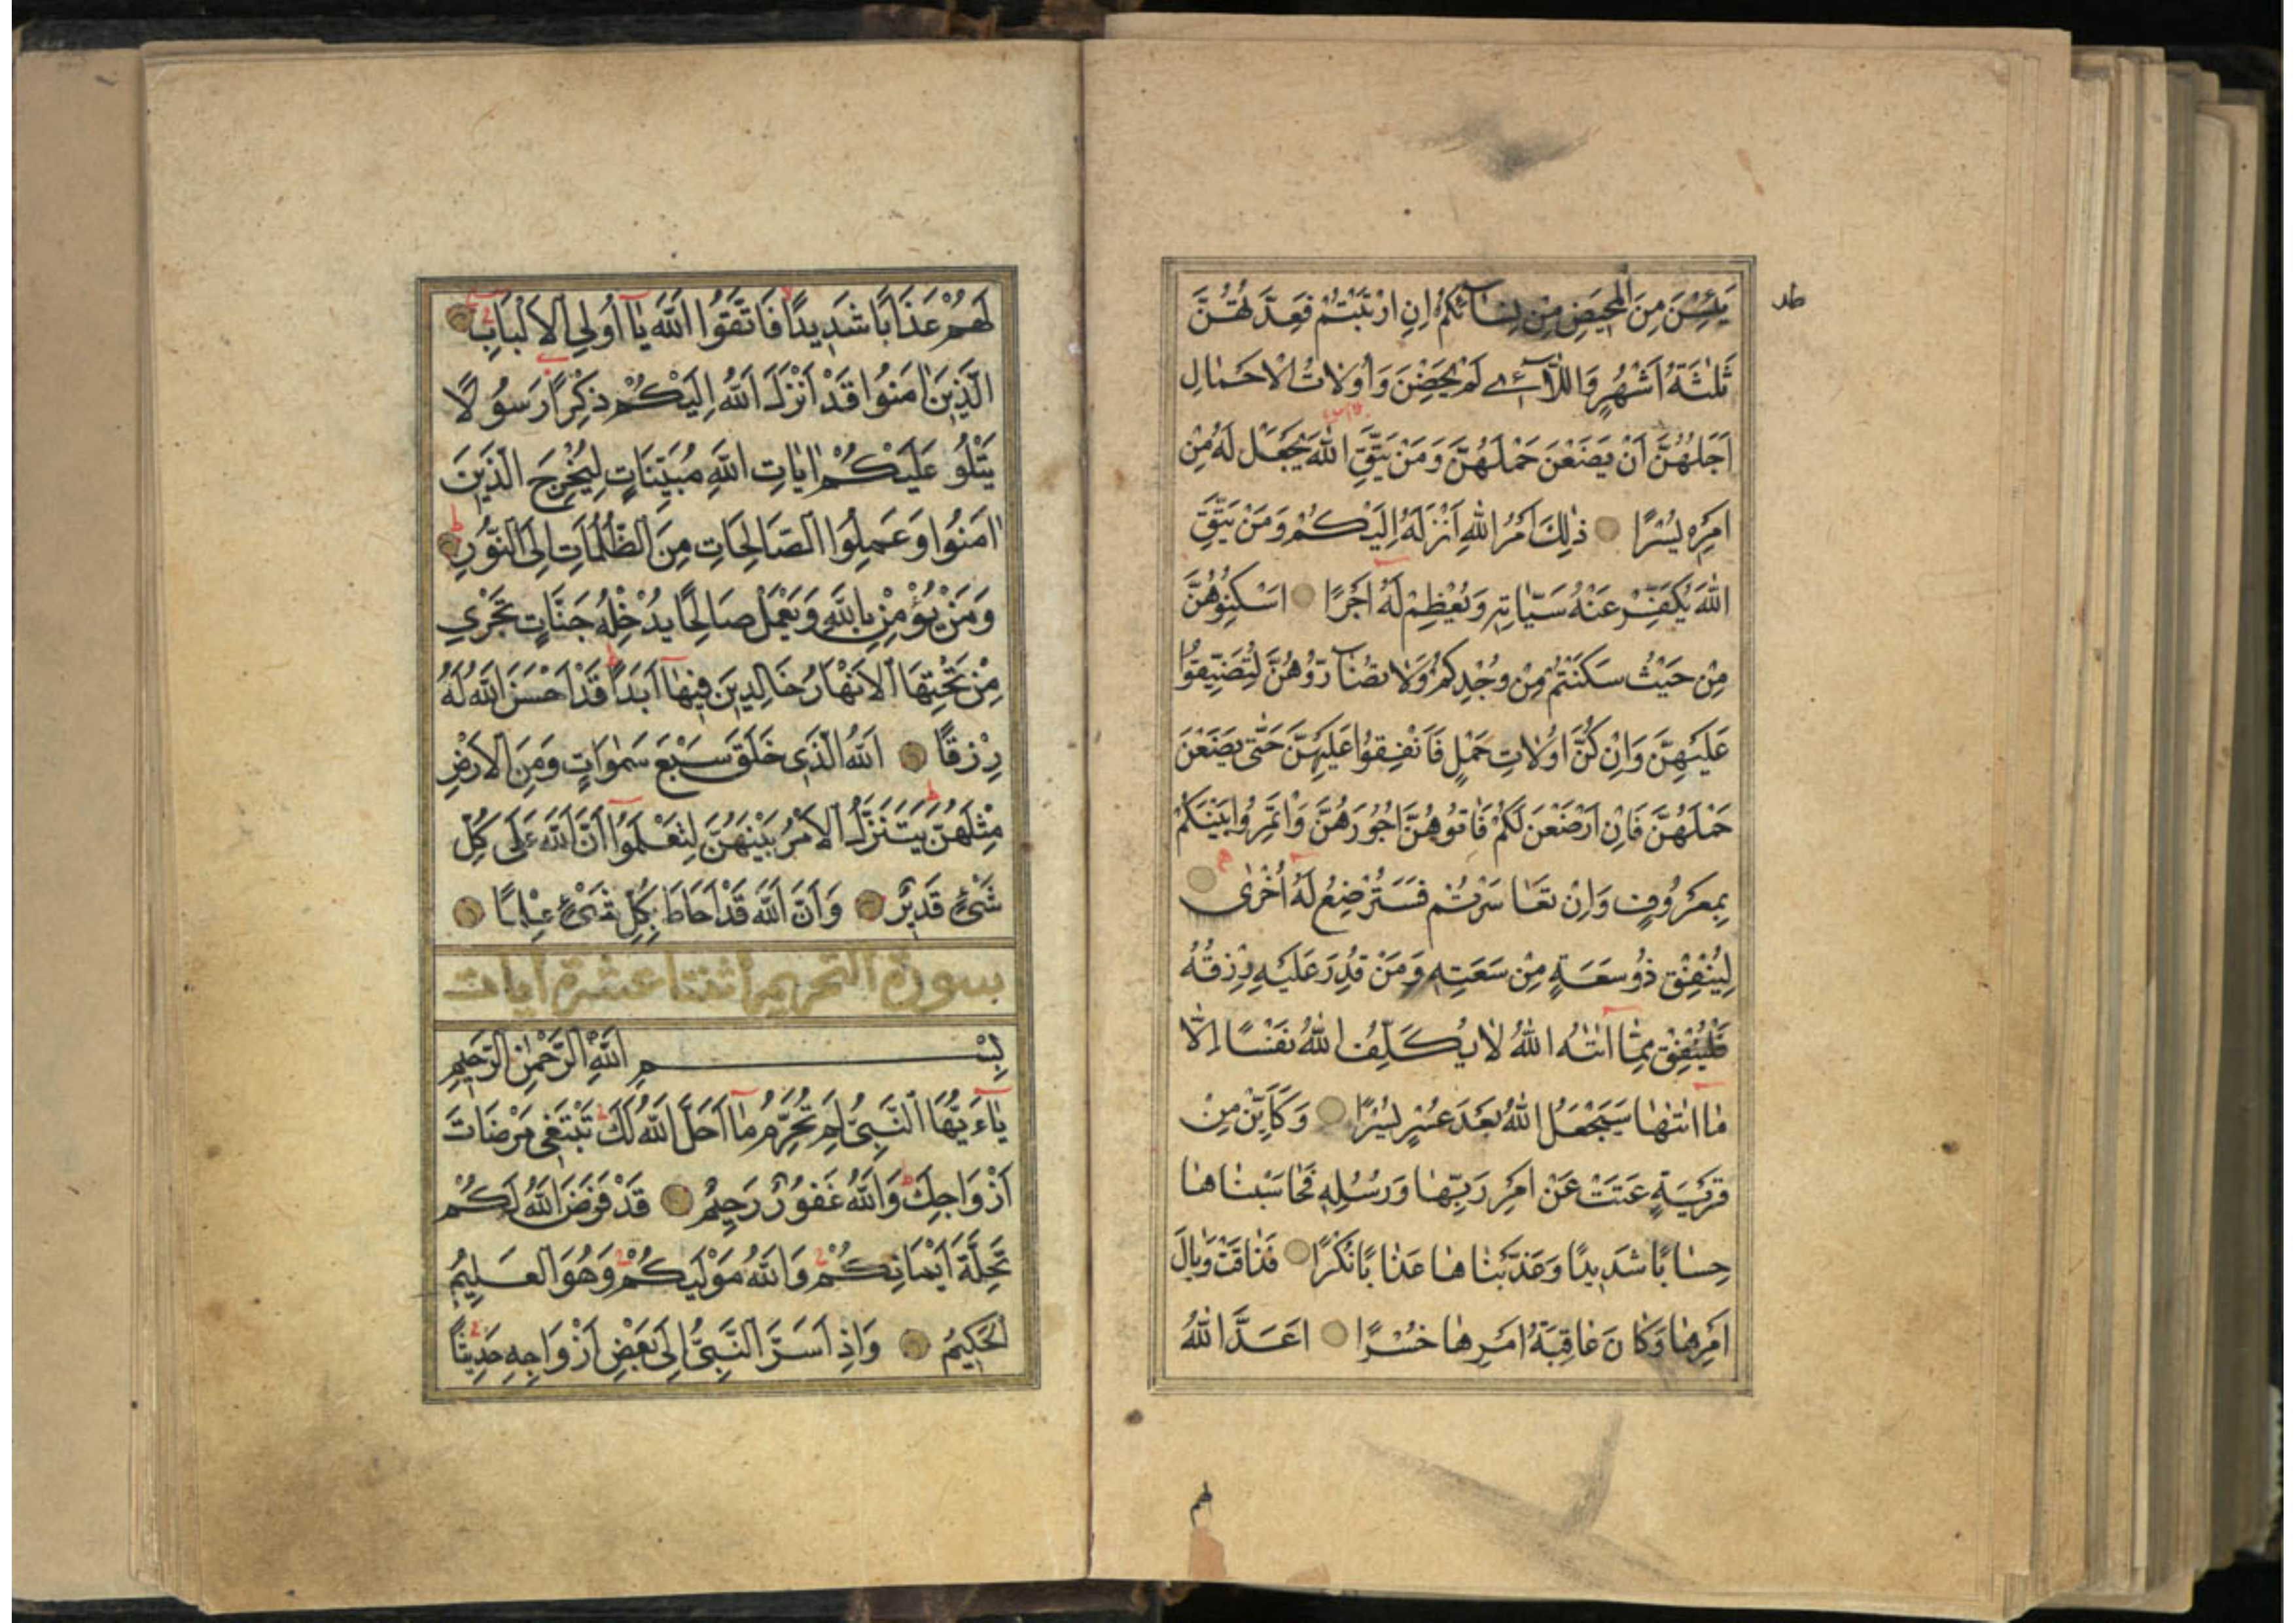 يَئِسْنَ مِنَ الْمَحِيضِ مِنْ نِسَائِكُمْ اِنِ ارْتَبْتُمْ فَعِدَّتُهُنَّ
ثَلٰثَةُ اَشْهُرٍ وَاللَّآئِي لَمْ يَحِضْنَ وَاُولَاتُ الْاَحْمَالِ
اَجَلُهُنَّ اَنْ يَضَعْنَ حَمْلَهُنَّ وَمَنْ يَتَّقِ اللّٰهَ يَجْعَلْ لَهُ مِنْ
اَمْرِهِ يُسْرًا ذٰلِكَ اَمْرُ اللّٰهِ اَنْزَلَهُ اِلَيْكُمْ وَمَنْ يَتَّقِ
اللّٰهَ يُكَفِّرْ عَنْهُ سَيِّاٰتِهِ وَيُعْظِمْ لَهُ اَجْرًا اَسْكِنُوهُنَّ
مِنْ حَيْثُ سَكَنْتُمْ مِنْ وُجْدِكُمْ وَلَا تُضَارُّوهُنَّ لِتُضَيِّقُوا
عَلَيْهِنَّ وَاِنْ كُنَّ اُولَاتِ حَمْلٍ فَاَنْفِقُوا عَلَيْهِنَّ حَتّٰى يَضَعْنَ
حَمْلَهُنَّ فَاِنْ اَرْضَعْنَ لَكُمْ فَاٰتُوهُنَّ اُجُورَهُنَّ وَاْتَمِرُوا بَيْنَكُمْ
بِمَعْرُوفٍ وَاِنْ تَعَاسَرْتُمْ فَسَتُرْضِعُ لَهُ اُخْرٰى
لِيُنْفِقْ ذُو سَعَةٍ مِنْ سَعَتِهِ وَمَنْ قُدِرَ عَلَيْهِ رِزْقُهُ
فَلْيُنْفِقْ مِمَّا اٰتٰهُ اللّٰهُ لَا يُكَلِّفُ اللّٰهُ نَفْسًا اِلَّا
مَا اٰتٰهَا سَيَجْعَلُ اللّٰهُ بَعْدَ عُسْرٍ يُسْرًا وَكَاَيِّنْ مِنْ
قَرْيَةٍ عَتَتْ عَنْ اَمْرِ رَبِّهَا وَرُسُلِهِ فَحَاسَبْنَاهَا
حِسَابًا شَدِيدًا وَعَذَّبْنَاهَا عَذَابًا نُكْرًا فَذَاقَتْ وَبَالَ
اَمْرِهَا وَكَانَ عَاقِبَةُ اَمْرِهَا خُسْرًا اَعَدَّ اللّٰهُ
لهم
لَهُمْ عَذَابًا شَدِيدًا فَاتَّقُوا اللّٰهَ يَا اُولِي الْاَلْبَابِ
الَّذِينَ اٰمَنُوا قَدْ اَنْزَلَ اللّٰهُ اِلَيْكُمْ ذِكْرًا رَسُولًا
يَتْلُو عَلَيْكُمْ اٰيَاتِ اللّٰهِ مُبَيِّنَاتٍ لِيُخْرِجَ الَّذِينَ
اٰمَنُوا وَعَمِلُوا الصَّالِحَاتِ مِنَ الظُّلُمَاتِ اِلَى النُّورِ
وَمَنْ يُؤْمِنْ بِاللّٰهِ وَيَعْمَلْ صَالِحًا يُدْخِلْهُ جَنَّاتٍ تَجْرِي
مِنْ تَحْتِهَا الْاَنْهَارُ خَالِدِينَ فِيهَا اَبَدًا قَدْ اَحْسَنَ اللّٰهُ لَهُ
رِزْقًا اَللّٰهُ الَّذِي خَلَقَ سَبْعَ سَمٰوَاتٍ وَمِنَ الْاَرْضِ
مِثْلَهُنَّ يَتَنَزَّلُ الْاَمْرُ بَيْنَهُنَّ لِتَعْلَمُوا اَنَّ اللّٰهَ عَلٰى كُلِّ
شَيْءٍ قَدِيرٌ وَاَنَّ اللّٰهَ قَدْ اَحَاطَ بِكُلِّ شَيْءٍ عِلْمًا
سورة التحريم اثنتا عشرة ايات
بِسْمِ اللّٰهِ الرَّحْمٰنِ الرَّحِيمِ
يَاءَيُّهَا النَّبِيُّ لِمَ تُحَرِّمُ مَا اَحَلَّ اللّٰهُ لَكَ تَبْتَغِي مَرْضَاتَ
اَزْوَاجِكَ وَاللّٰهُ غَفُورٌ رَحِيمٌ قَدْ فَرَضَ اللّٰهُ لَكُمْ
تَحِلَّةَ اَيْمَانِكُمْ وَاللّٰهُ مَوْلٰيكُمْ وَهُوَ الْعَلِيمُ
الْحَكِيمُ وَاِذْ اَسَرَّ النَّبِيُّ اِلٰى بَعْضِ اَزْوَاجِهِ حَدِيثًا